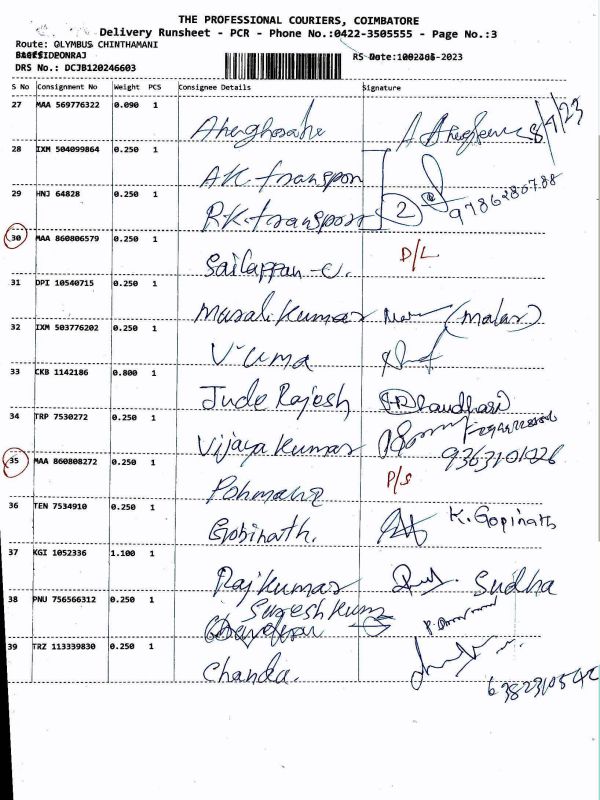 THE PROFESSIONAL COURIERS, COIMBATORE
Delivery Runsheet - PCR - Phone No.:0422-3505555 - Page No.:3
Route: OLYMBUS CHINTHAMANI
DRS No.: DCJB120246603
S No Consignment No Weight PCS Consignee Details Signature
27 MAA 569776322 0.090 1
8/4/23
28 IXM 504099864 0.250 1
AK transpor
29 HNJ 64828 0.250 1
RK transpor 2 9786280788
30 MAA 860806579 0.250 1
Sailappan - C. D/L
31 DPI 10540715 0.250 1
Murali Kumar (malar)
32 IXM 503776202 0.250 1
V Uma
33 CKB 1142186 0.800 1
Jude Rajesh Chaudhari
34 TRP 7530272 0.250 1
Vijaya Kumar 9363101026
35 MAA 860808272 0.250 1
P/S
36 TEN 7534910 0.250 1
Gobinath. K. Gopinath
37 KGI 1052336 1.100 1
Rajkumar Sudha
38 PNU 756566312 0.250 1
Suresh Kum
39 TRZ 113339830 0.250 1
Chanda.